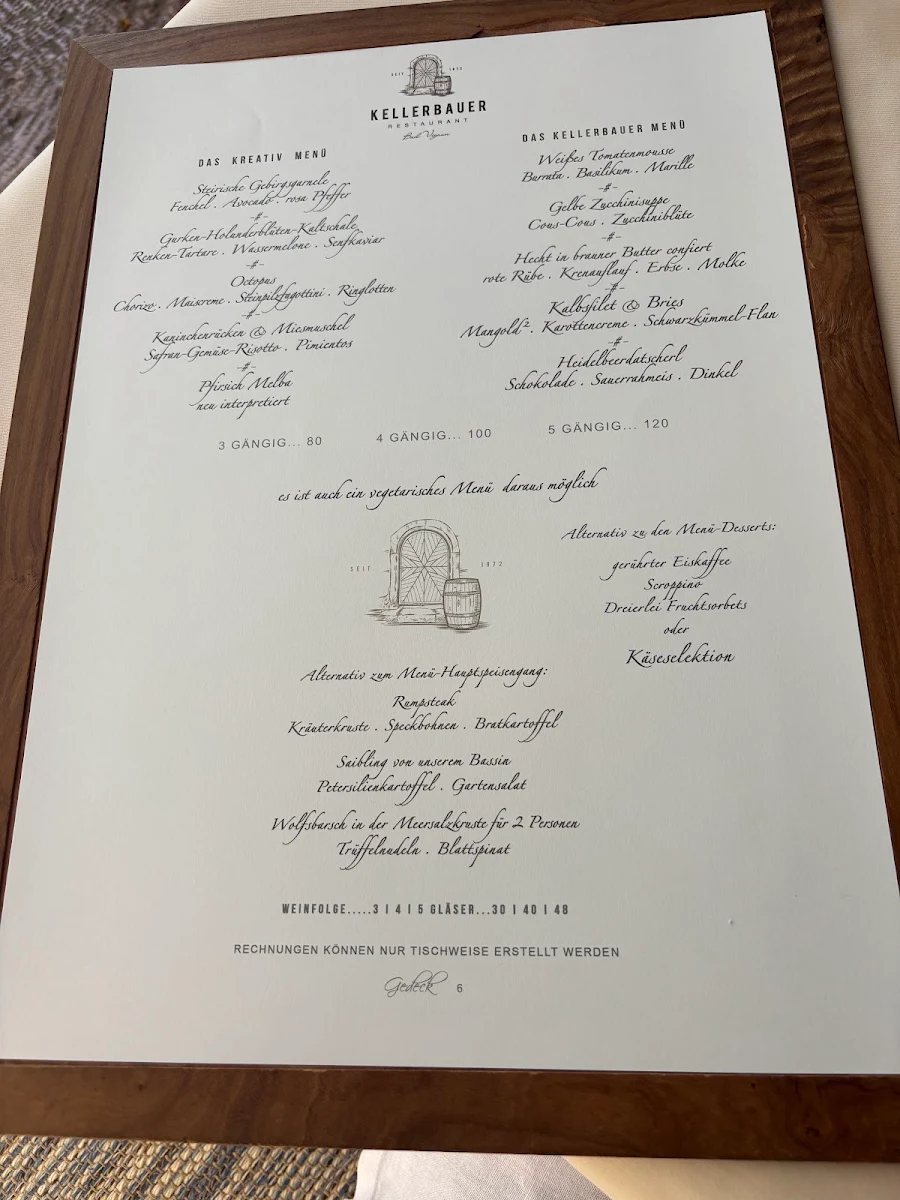 SEIT 1872
KELLERBAUER
RESTAURANT
Bad Vigaun
DAS KREATIV MENÜ
Steirische Gebirgsgarnele
Fenchel . Avocado . rosa Pfeffer
-#-
Gurken-Holunderblüten-Kaltschale
Renken-Tartare . Wassermelone . Senfkaviar
-#-
Octopus
Chorizo . Maiscreme . Steinpilzfagottini . Ringlotten
-#-
Kaninchenrücken & Miesmuschel
Safran-Gemüse-Risotto . Pimientos
-#-
Pfirsich Melba
neu interpretiert
DAS KELLERBAUER MENÜ
Weißes Tomatenmousse
Burrata . Basilikum . Marille
-#-
Gelbe Zucchinisuppe
Cous-Cous . Zucchiniblüte
-#-
Hecht in brauner Butter confiert
rote Rübe . Krenauflauf . Erbse . Molke
-#-
Kalbsfilet & Bries
Mangold² . Karottencreme . Schwarzkümmel-Flan
-#-
Heidelbeerdatscherl
Schokolade . Sauerrahmeis . Dinkel
3 GÄNGIG... 80 4 GÄNGIG... 100 5 GÄNGIG... 120
es ist auch ein vegetarisches Menü daraus möglich
SEIT 1872
Alternativ zu den Menü-Desserts:
gerührter Eiskaffee
Scroppino
Dreierlei Fruchtsorbets
oder
Käseselektion
Alternativ zum Menü-Hauptspeisengang:
Rumpsteak
Kräuterkruste . Speckbohnen . Bratkartoffel
Saibling von unserem Bassin
Petersilienkartoffel . Gartensalat
Wolfsbarsch in der Meersalzkruste für 2 Personen
Trüffelnudeln . Blattspinat
WEINFOLGE.....3 I 4 I 5 GLÄSER...30 I 40 I 48
RECHNUNGEN KÖNNEN NUR TISCHWEISE ERSTELLT WERDEN
Gedeck 6